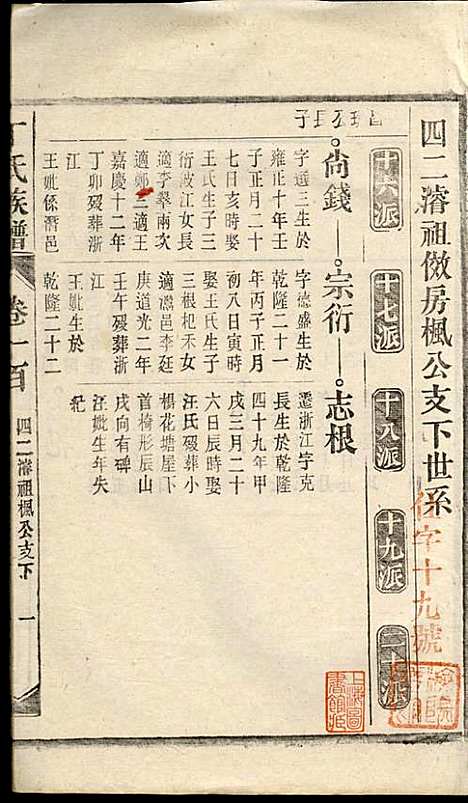 四二濬祖儆房楓公支下世系
任字十九號
十六派
十七派
十八派
十九派
二十派
上海圖書館藏
尚錢
宗衍
志根
字選三生於
雍正十年壬
子正月二十
七日亥時娶
王氏生子三
衍波江女長
適李翠南次
適鄭三適王
嘉慶十二年
丁卯歿葬浙
江
王妣係潛邑
字德盛生於
乾隆二十一
年丙子正月
初八日寅時
娶王氏生子
三根杞禾女
適潛邑李廷
庚道光二年
壬午歿葬浙
江
王妣生於
乾隆二十二
遷浙江字克
長生於乾隆
四十九年甲
戌三月二十
六日辰時娶
汪氏歿葬小
楊花塘屋下
首椅形辰山
戌向有碑
汪妣生年失
紀
丁氏族譜
卷一百
四二濬祖楓公支下
一